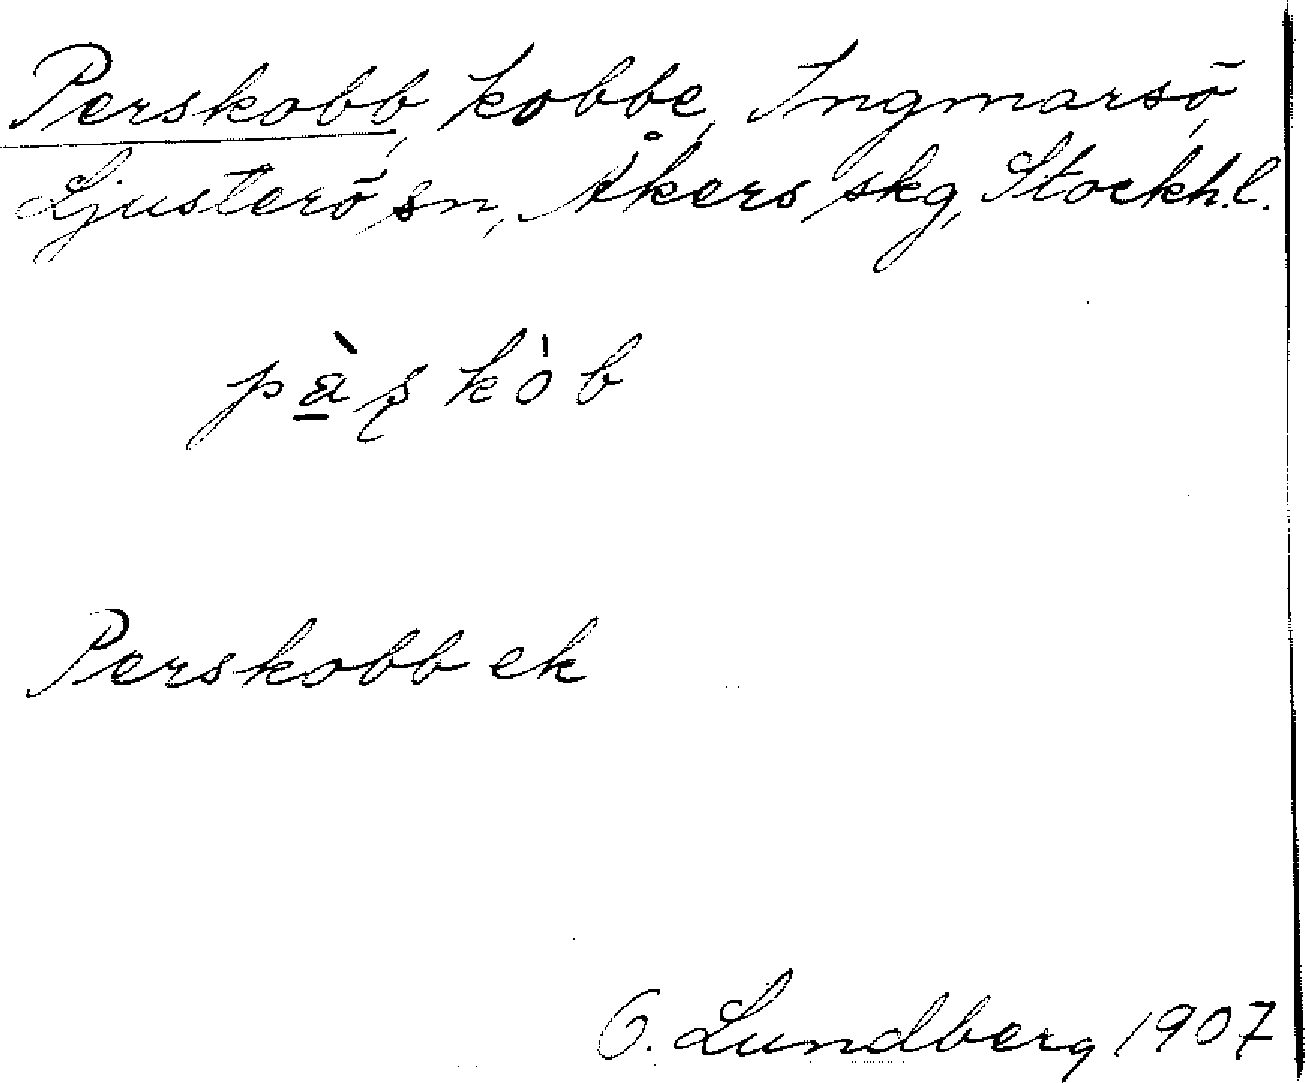 Perskobb, kobbe, Ingmarsö,
Ljusterö sn, Åkers skg, Stockh.l.
pà̲ʂkȯb
Perskobb ek
O. Lundberg 1907